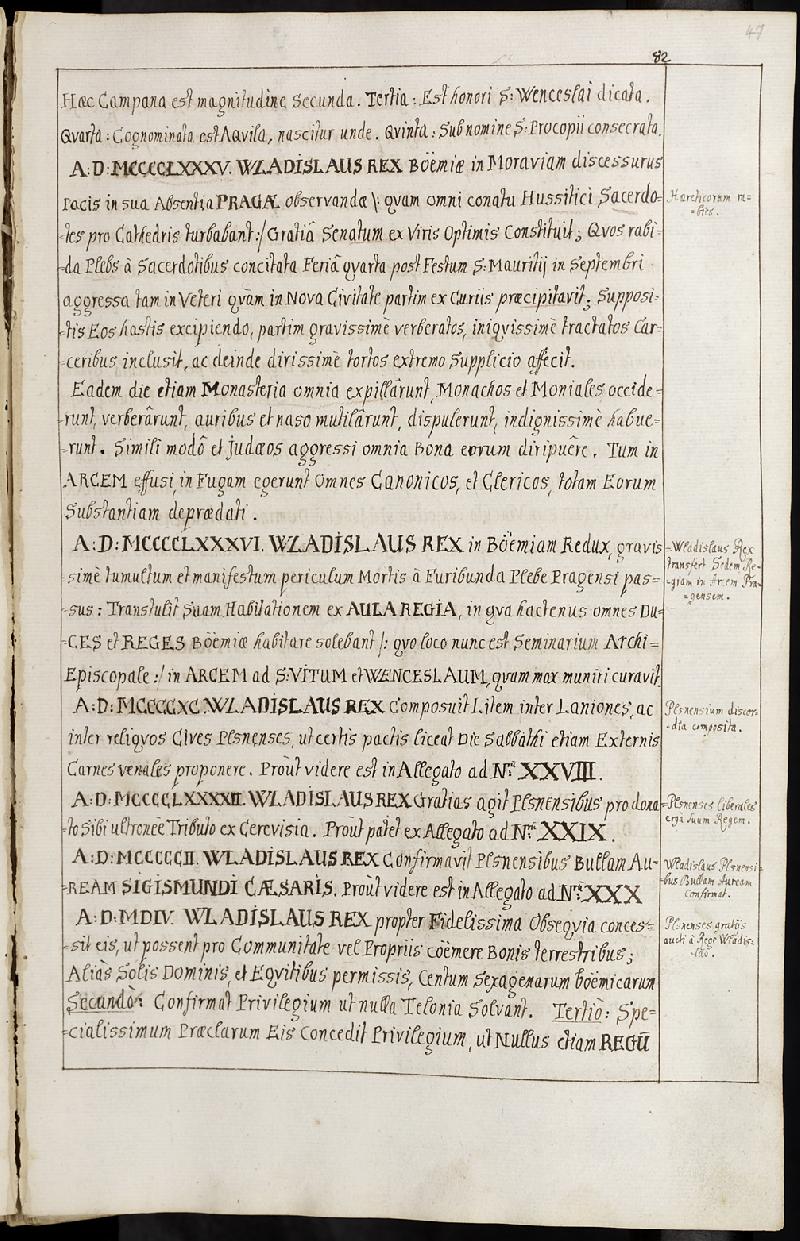 82
Hæc Campana est magnitudine secunda. Tertia: Est honori S: Wenceslai dicata.
Qvarta: Cognominata est Aqvila, nascitur unde. Qvinta: Sub nomine S: Procopii consecrata.
A: D: MCCCCLXXXV. WLADISLAUS REX Boëmiæ in Moraviam discessurus
Pacis in sua Absentia PRAGÆ observandæ |: qvam omni conatu Hussitici Sacerdo=
tes pro Cathedris turbabant :| Gratiâ Senatum ex Viris Optimis Constituit; Qvos rabi=
Hæreticorum ra=
bies.
da Plebs à Sacerdotibus concitata Feriâ qvarta post Festum S: Mauritij in Septembri
aggressa tam in Veteri qvàm in Nova Civitate partim ex Curiis præcipitavit; Supposi=
tis Eos hastis excipiendo, partim gravissimè verberatos, iniqvissimè tractatos Car=
ceribus inclusit, ac deinde dirissimè tortos extremo Supplicio affecit.
Eadem die etiam Monasteria omnia expillârunt, Monachos et Moniales occide=
runt, verberârunt, auribus et naso mutilârunt, dispulerunt, indignissimè habue=
runt. Simili modô et Judæos aggressi omnia Bona eorum diripuêre. Tum in
ARCEM effusi, in Fugam egerunt Omnes Canonicos, et Clericos, totam Eorum
Substantiam deprædati.
A: D: MCCCCLXXXVI. WLADISLAUS REX in Boëmiam Redux, gravis=
simè tumultum et manifestum periculum Mortis à Furibunda Plebe Pragensi pas=
sus: Transtulit Suam Habitationem ex AULA REGIA, in qva hactenus omnes Du=
CES et REGES Boëmiæ habitare solebant |: qvo loco nunc est Seminarium Archi=
Episcopale :| in ARCEM ad S: VITUM et WENCESLAUM, qvam mox muniri curavit.
Wladislaus Rex
transfert Sedem Re=
giam in Arcem Pra=
gensem.
A: D: MCCCCXC. WLADISLAUS REX Composuit Litem inter Laniones, ac
inter reliqvos Cives Plsnenses, ut certis pactis liceat Die Sabbathi etiam Externis
Carnes venales proponere. Proùt videre est in Allegato ad Nr. XXVIII.
Plsnensium discor=
dia composita.
A: D: MCCCCLXXXXIII. WLADISLAUS REX Gratias agit Plsnensibus pro dona=
to Sibi ultroneè Tributo ex Cerevisia. Proùt patet ex Allegato ad Nr. XXIX.
Plsnenses liberales
ergà suum Regem.
A: D: MCCCCCII. WLADISLAUS REX Confirmavit Plsnensibus Bullam Au=
REAM SIGISMUNDI CÆSARIS. Proùt videre est in Allegato ad Nr. XXX
Wladislaus Plsnensi=
bus Bullam Auream
Confirmat.
A: D: MDIV. WLADISLAUS REX propter Fidelissima Obseqvia conces=
sit eis, ut possent pro Communitate vel Propriis coëmere Bonis terrestribus;
Aliàs Solis Dominis, et Eqvitibus permissis, Centum Sexagenarum boëmicarum
Secundò: Confirmat Privilegium ut nulla Telonia Solvant. Tertiò: Spe=
cialissimum Præclarum Eis Concedit Privilegium, ut Nullus etiam REGŪ
Plsnenses gratiis
aucti à Rege Wladis=
lao.